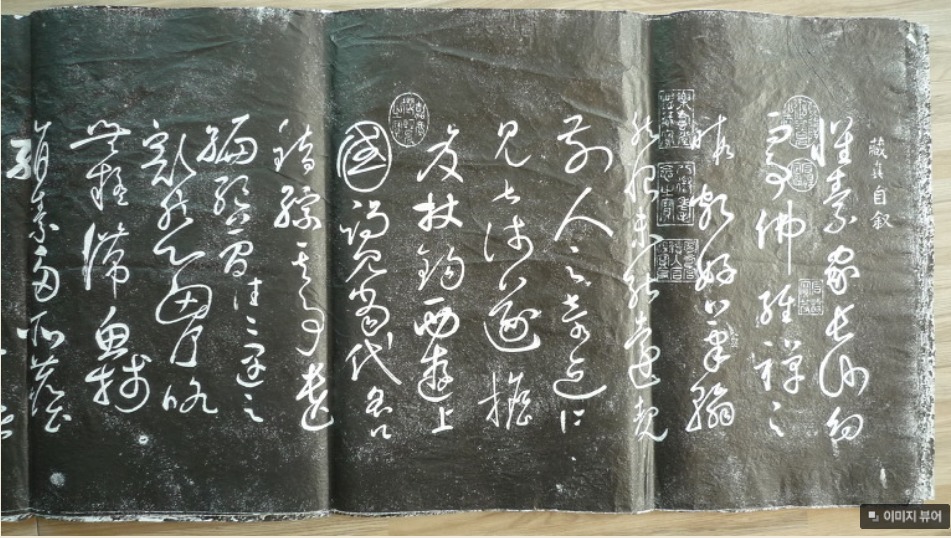 藏真自叙
懷素家長沙幼
而事佛經禪之
暇頗好筆翰
然恨未能遠覩
前人之奇迹所
見甚淺遂擔
笈杖錫西遊上
國謁見當代名公
錯綜其事遺
編絶簡往往遇之
豁然心胸略
無疑滯魚牋
絹素多所塵點
이미지 뷰어